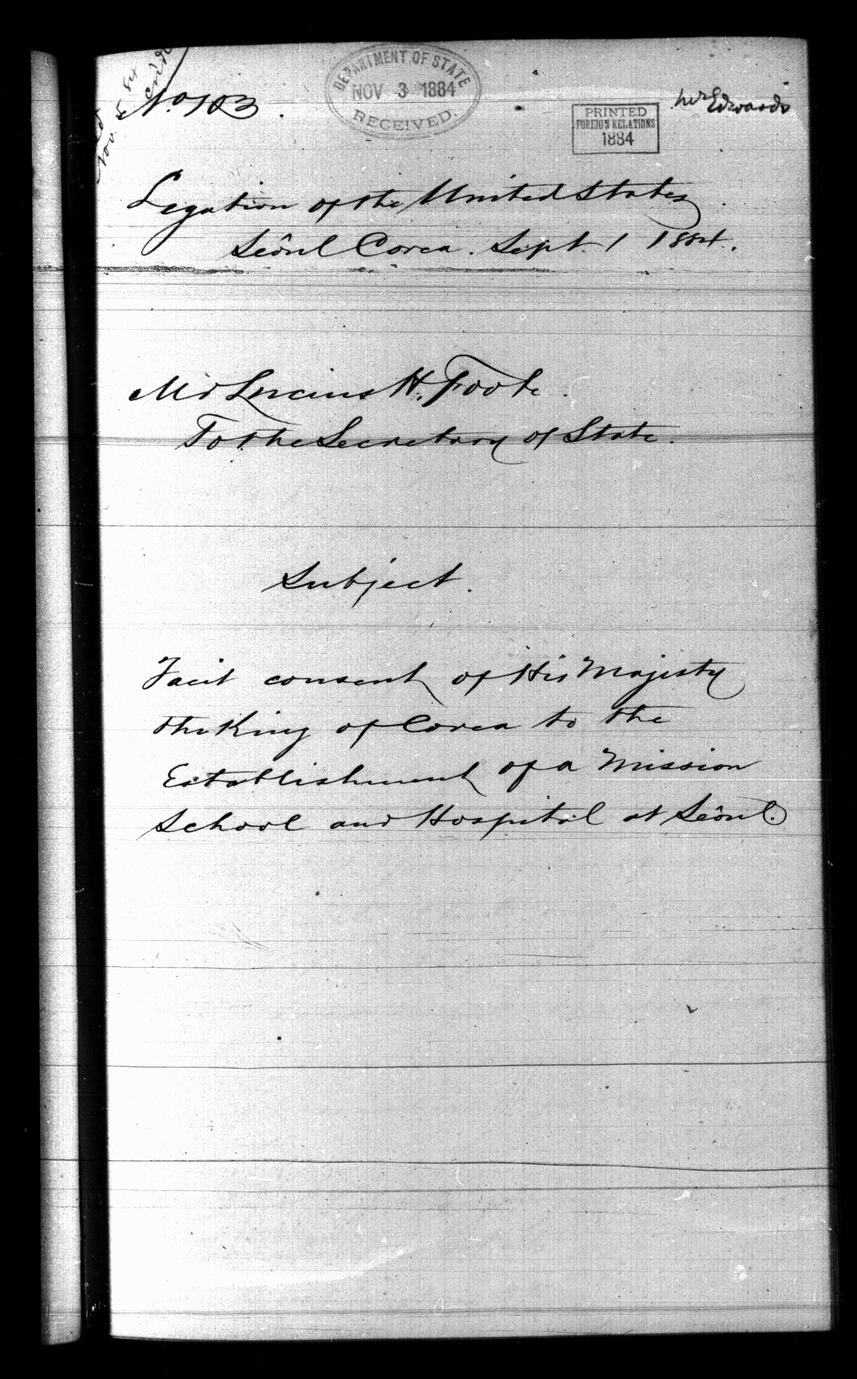 No 103.
DEPARTMENT OF STATE
NOV 3 1884
RECEIVED.
PRINTED
FOREIGN RELATIONS
1884
Mr Edwards
Legation of the United States
Seôul Corea. Sept. 1 1884.
Mr Lucius H. Foote.
To the Secretary of State.
Subject.
Tacit consent of His Majesty
the King of Corea to the
Establishment of a Mission
School and Hospital at Seôul.